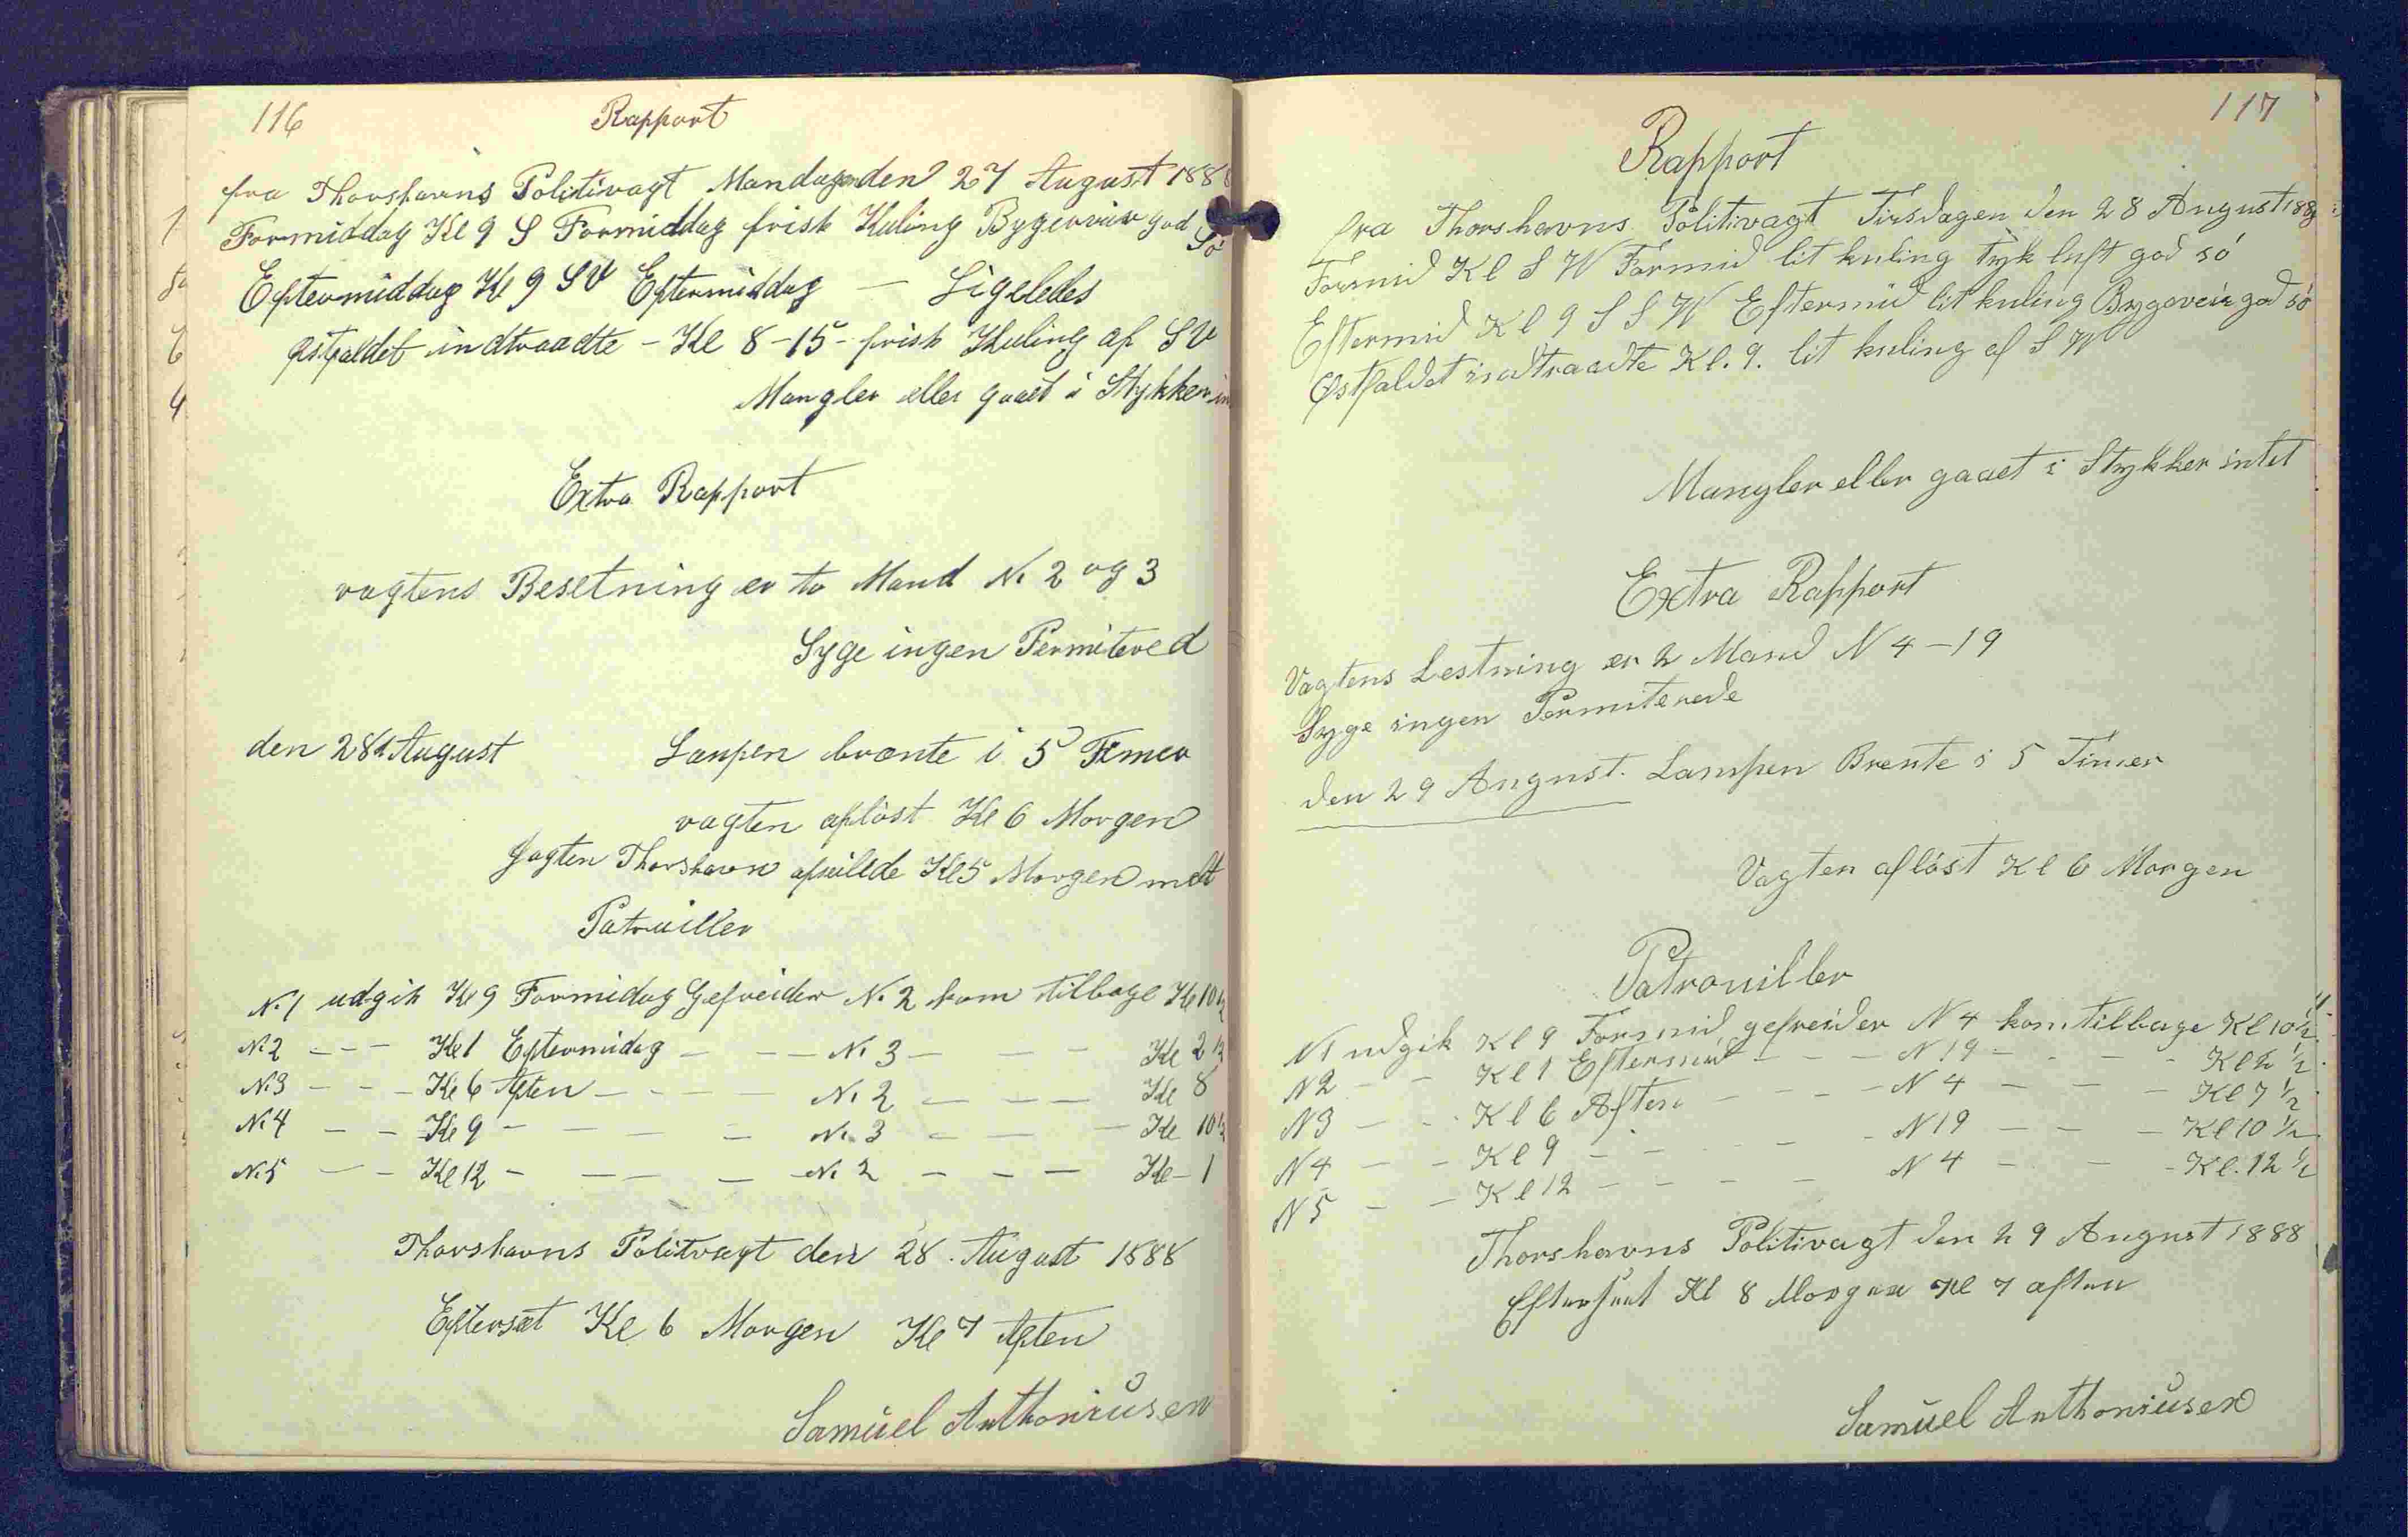 116
Rapport
fra Thorshavns Politivagt Mandagen den 27 August 1888
Formiddag Kl 9 S Formiddag frisk Kuling Bygerveir god Sö
Eftermiddag Kl 9 SV Eftermiddag — Ligeledes
Østfaldet indtraadte - Kl 8-15- frisk Kuling af SV
Mangler eller gaaet i Stykker in
Extra Rapport
vagtens Besetning er to Mand No 2 og 3
Syge ingen Permitered
den 28d August Lampen brænte i 5 Timer
vagten aflöst Kl 6 Morgen
Jagten Thorshavn afseilede Kl 5 Morgen mdt
Patruiller
No 1 udgik Kl 9 Formidag Gefreider No 2 kom tilbage Kl 10½
No 2 - - - Kl 1 Eftermidag - - - No 3 - - - Kl 2½
No 3 - - - Kl 6 Aften - - - - No 2 - - - Kl 8
No 4 - - Kl 9 - - - - - No 3 - - - Kl 10½
No 5 - - Kl 12 - - - - No 2 - - - Kl - 1
Thorshavns Politvagt den 28. August 1888
Eftersæt Kl 6 Morgen Kl 7 Aften
Samuel Anthoniusen
117
Rapport
fra Thorshavns Politivagt Tirsdagen den 28 August 188
Formid Kl S W Formid lit kuling tyk luft god só
Eftermid Kl 9 S S W Eftermid lit kuling Bygeveir god só
Østfaldet indtraadte Kl. 9. lit kuling af S W
Mangler eller gaaet i Stykker intet
Extra Rapport
Vagtens Lestning er 2 Mand N 4 - 19
Syge ingen Permiterede
den 29 August. Lampen Brente i 5 Timer
Vagten aflöst Kl 6 Morgen
Patrouiller
N 1 udgik Kl 9 Formid gefreider N 4 kom tilbage Kl 10½
N 2 - - Kl 1 Eftermid - - - N 19 - - - - Kl 2½
N 3 - - Kl 6 Aften - - - N 4 - - - Kl 7½
N 4 - - Kl 9 - - - - N 19 - - - Kl 10½
N 5 - - Kl 12 - - - - N 4 - - - Kl. 12½
Thorshavns Politivagt den 29 August 1888
Efterseet Kl 8 Morgen Kl 7 aften
Samuel Anthoniusen